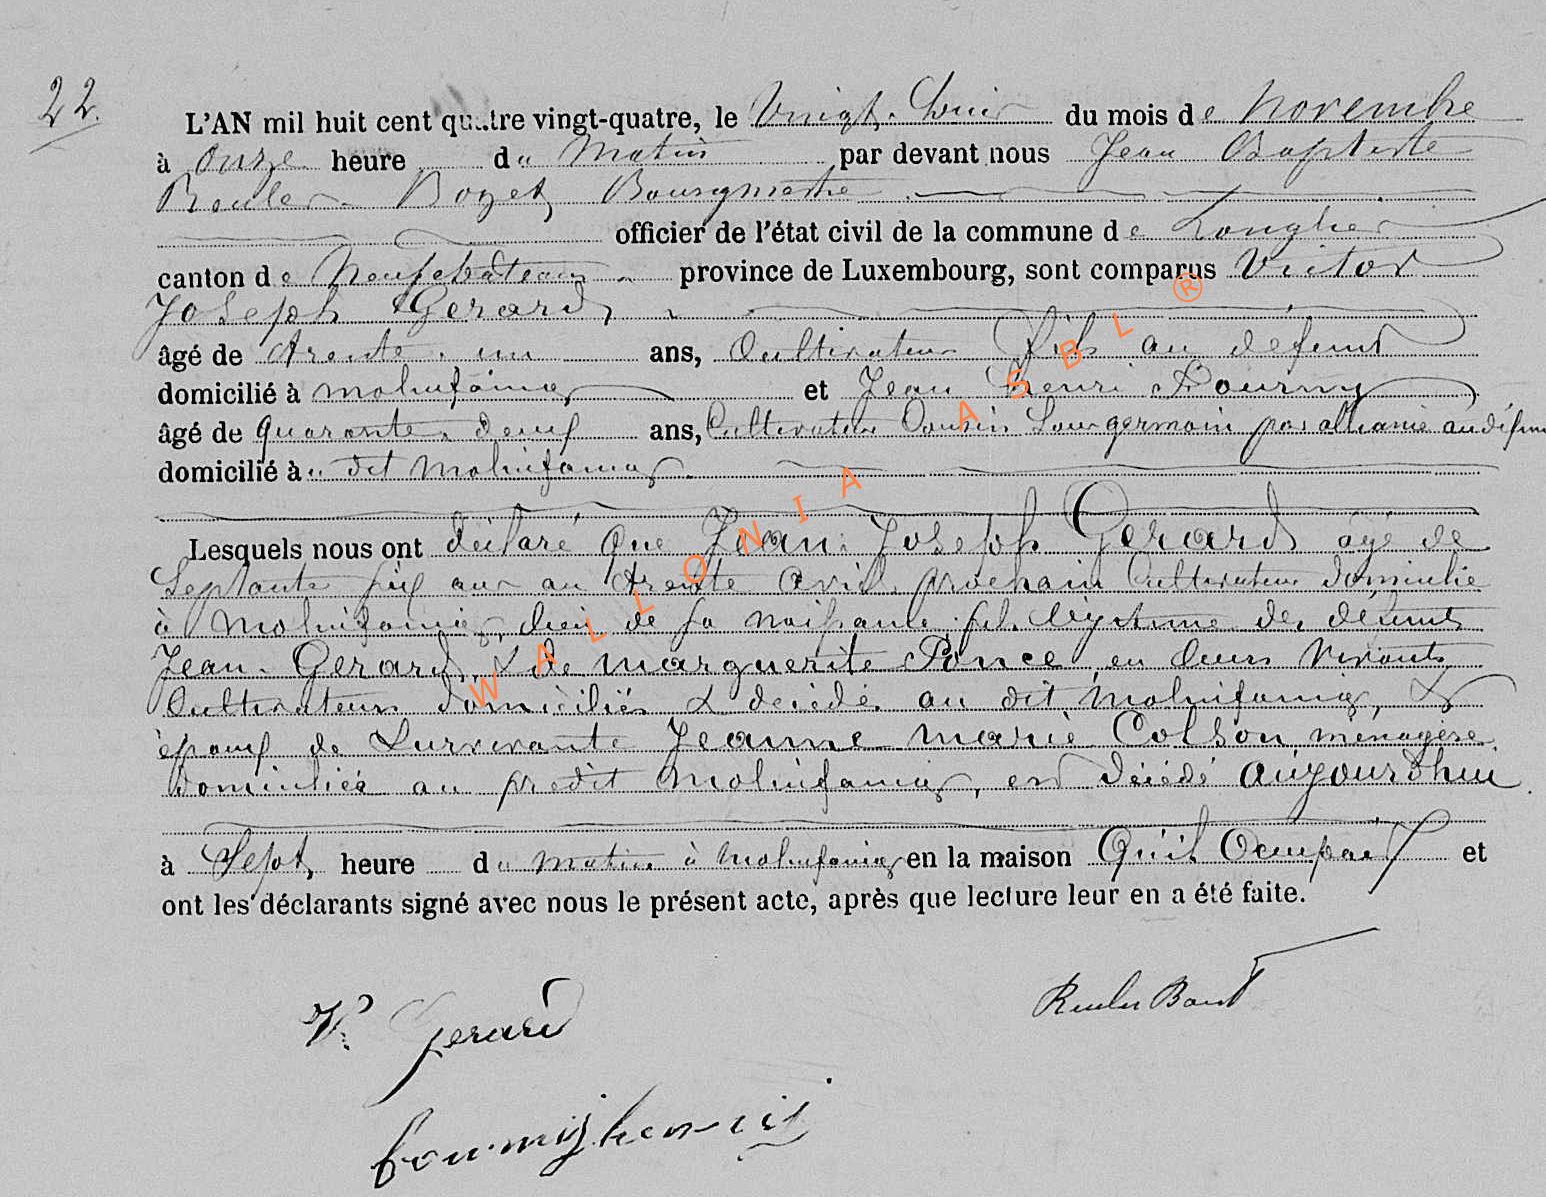 22.
L'AN mil huit cent quatre vingt-quatre, le Vingt. du mois de Novembre
à Onze heure du Matin par devant nous Jean Baptiste
Reuler Bozet Bourgmestre
officier de l'état civil de la commune de Longlier
canton de Neufchâteau province de Luxembourg, sont comparus Victor
Joseph Gerard
âgé de trente. un ans, Cultivateur fils au defunt
domicilié à molinfaing et Jean henri Fourny
âgé de quarante. ans, Cultivateur Cousin Sous germain par alliance au défunt
domicilié à u dit Molinfaing
Lesquels nous ont déclaré que Jean. Joseph Gerard âgé de
Septante six ans au trente avril prochain Cultivateur domicilié
à Molinfaing, lieu de sa naissance fils légitime des défunts
Jean. Gerard, & de marguerite Ponce, en leurs vivants
Cultivateurs domiciliés & décédés au dit Molinfaing, &
époux de Survivante Jeanne marie Colson, ménagère,
domiciliée au predit Molinfaing, est décédé aujourdhui
à Sept, heure du matin à Molinfaing en la maison Qu'il Occupait et
ont les déclarants signé avec nous le présent acte, après que lecture leur en a été faite.
Vr Gerard
fourny henri
WALLONIA ASBL ®